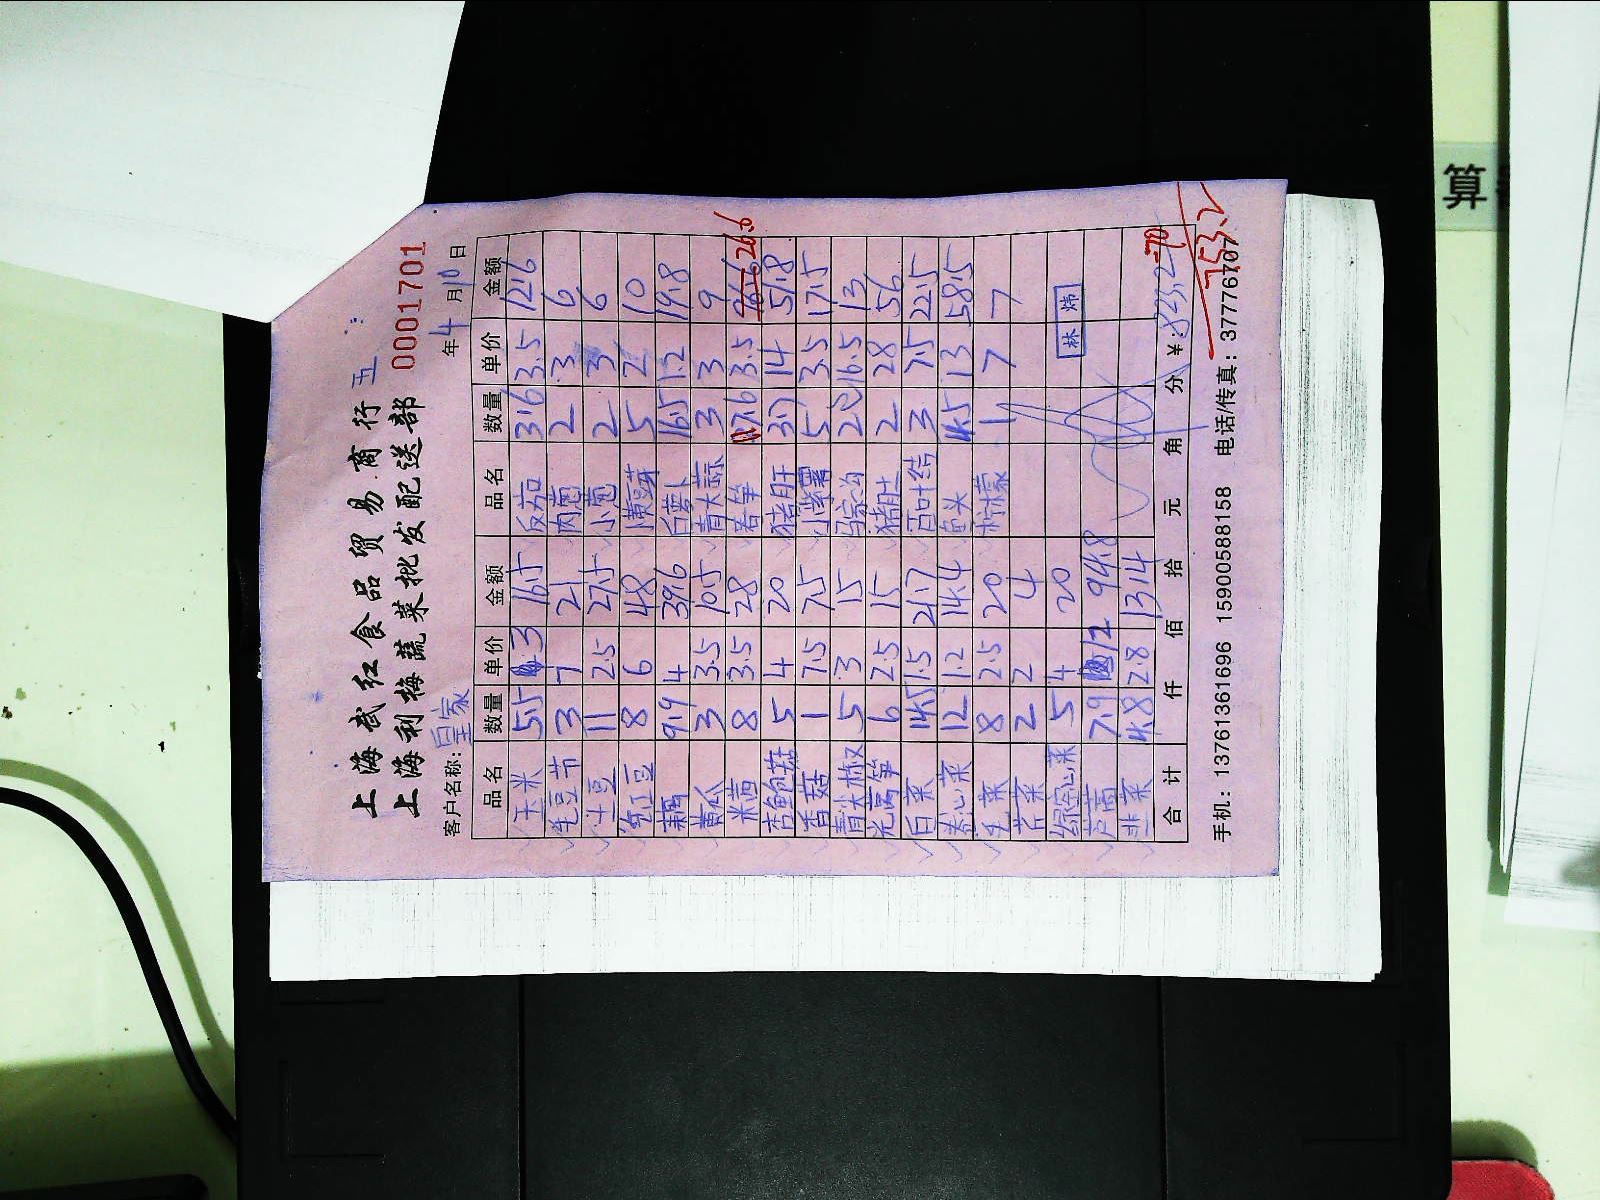 上海武红食品贸易商行 五
上海利梅蔬菜批发配送部 0001701
客户名称: 皇家 年 4 月 10 日
品名 数量 单价 金额 品名 数量 单价 金额
玉米 5.5 3 16.5 反茄 3.6 3.5 12.6
毛豆节 3 7 21 肉茴 2 3 6
土豆 11 2.5 27.5 小葱 2 3 6
红豆 8 6 48 黄豆芽 5 2 10
藕 9.9 4 39.6 白萝卜 16.5 1.2 19.8
黄瓜 3 3.5 10.5 青大蒜 3 3 9
米茜 8 3.5 28 春笋 7.6 3.5 96.6 26.6
杏鲍菇 5 4 20 猪肝 3.7 14 51.8
香菇 1 7.5 7.5 小紫薯 5 3.5 17.5
青尖椒 5 3 15 2 6.5 13
光莴笋 6 2.5 15 猪肚 2 28 56
白菜 14.5 1.5 21.7 百叶结 3 7.5 22.5
卷心菜 12 1.2 14.4 鱼头 4.5 13 58.5
毛菜 8 2.5 20 柠檬 1 7 7
芹菜 2 2 4
绿空心菜 5 4 20 林炜
芦蒿 7.9 12 94.8
韭菜 4.8 2.8 13.14
合计 仟 佰 拾 元 角 分 ¥: 823.2 -70
753.2
手机: 13761361696 15900588158 电话/传真: 37776707
算